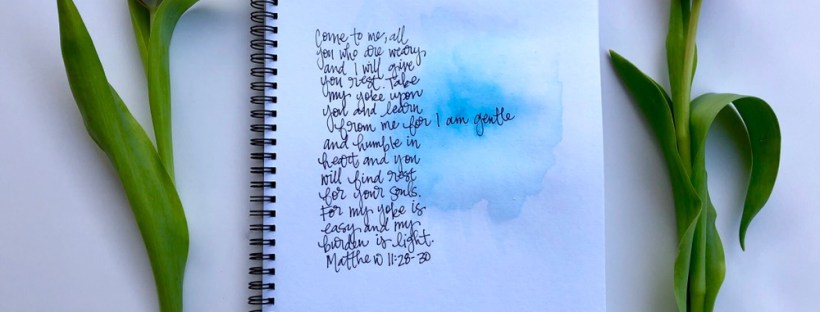 Come to me, all
you who are weary,
and I will give
you rest. Take
my yoke upon
you and learn
from me for I am gentle
and humble in
heart, and you
will find rest
for your souls.
For my yoke is
easy and my
burden is light.
Matthew 11:28-30